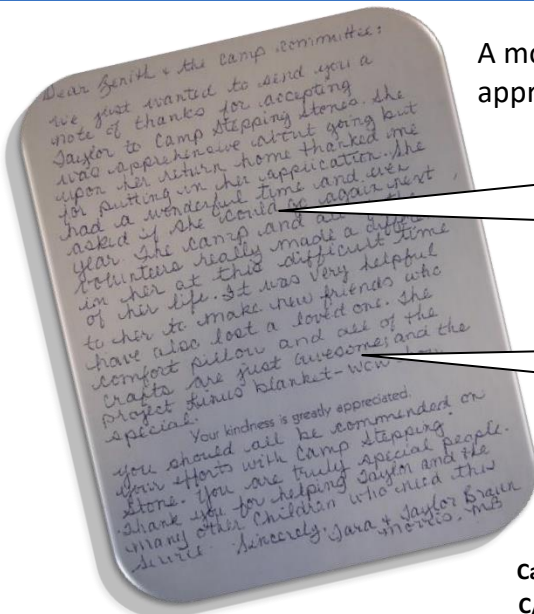 Dear Zenith & the Camp Committee;
we just wanted to send you a
note of thanks for accepting
Taylor to Camp Stepping Stones. She
was apprehensive about going but
upon her return home thanked me
for putting in her application. She
had a wonderful time and even
asked if she could go again next
year. The camp and all of the
volunteers really made a
in her at this difficult time
of her life. It was very helpful
to her to make new friends who
have also lost a loved one. The
comfort pillow and all of the
crafts are just awesome; and the
project Linus blanket - wow how
special.
Your kindness is greatly appreciated.
you should all be commended on
your efforts with Camp Stepping
Stone. You are truly special people.
Thank you for helping Taylor and the
many other children who need this
Sincerely, Tara & Taylor Braun
Morris, MB
A mo
appr
Ca
C